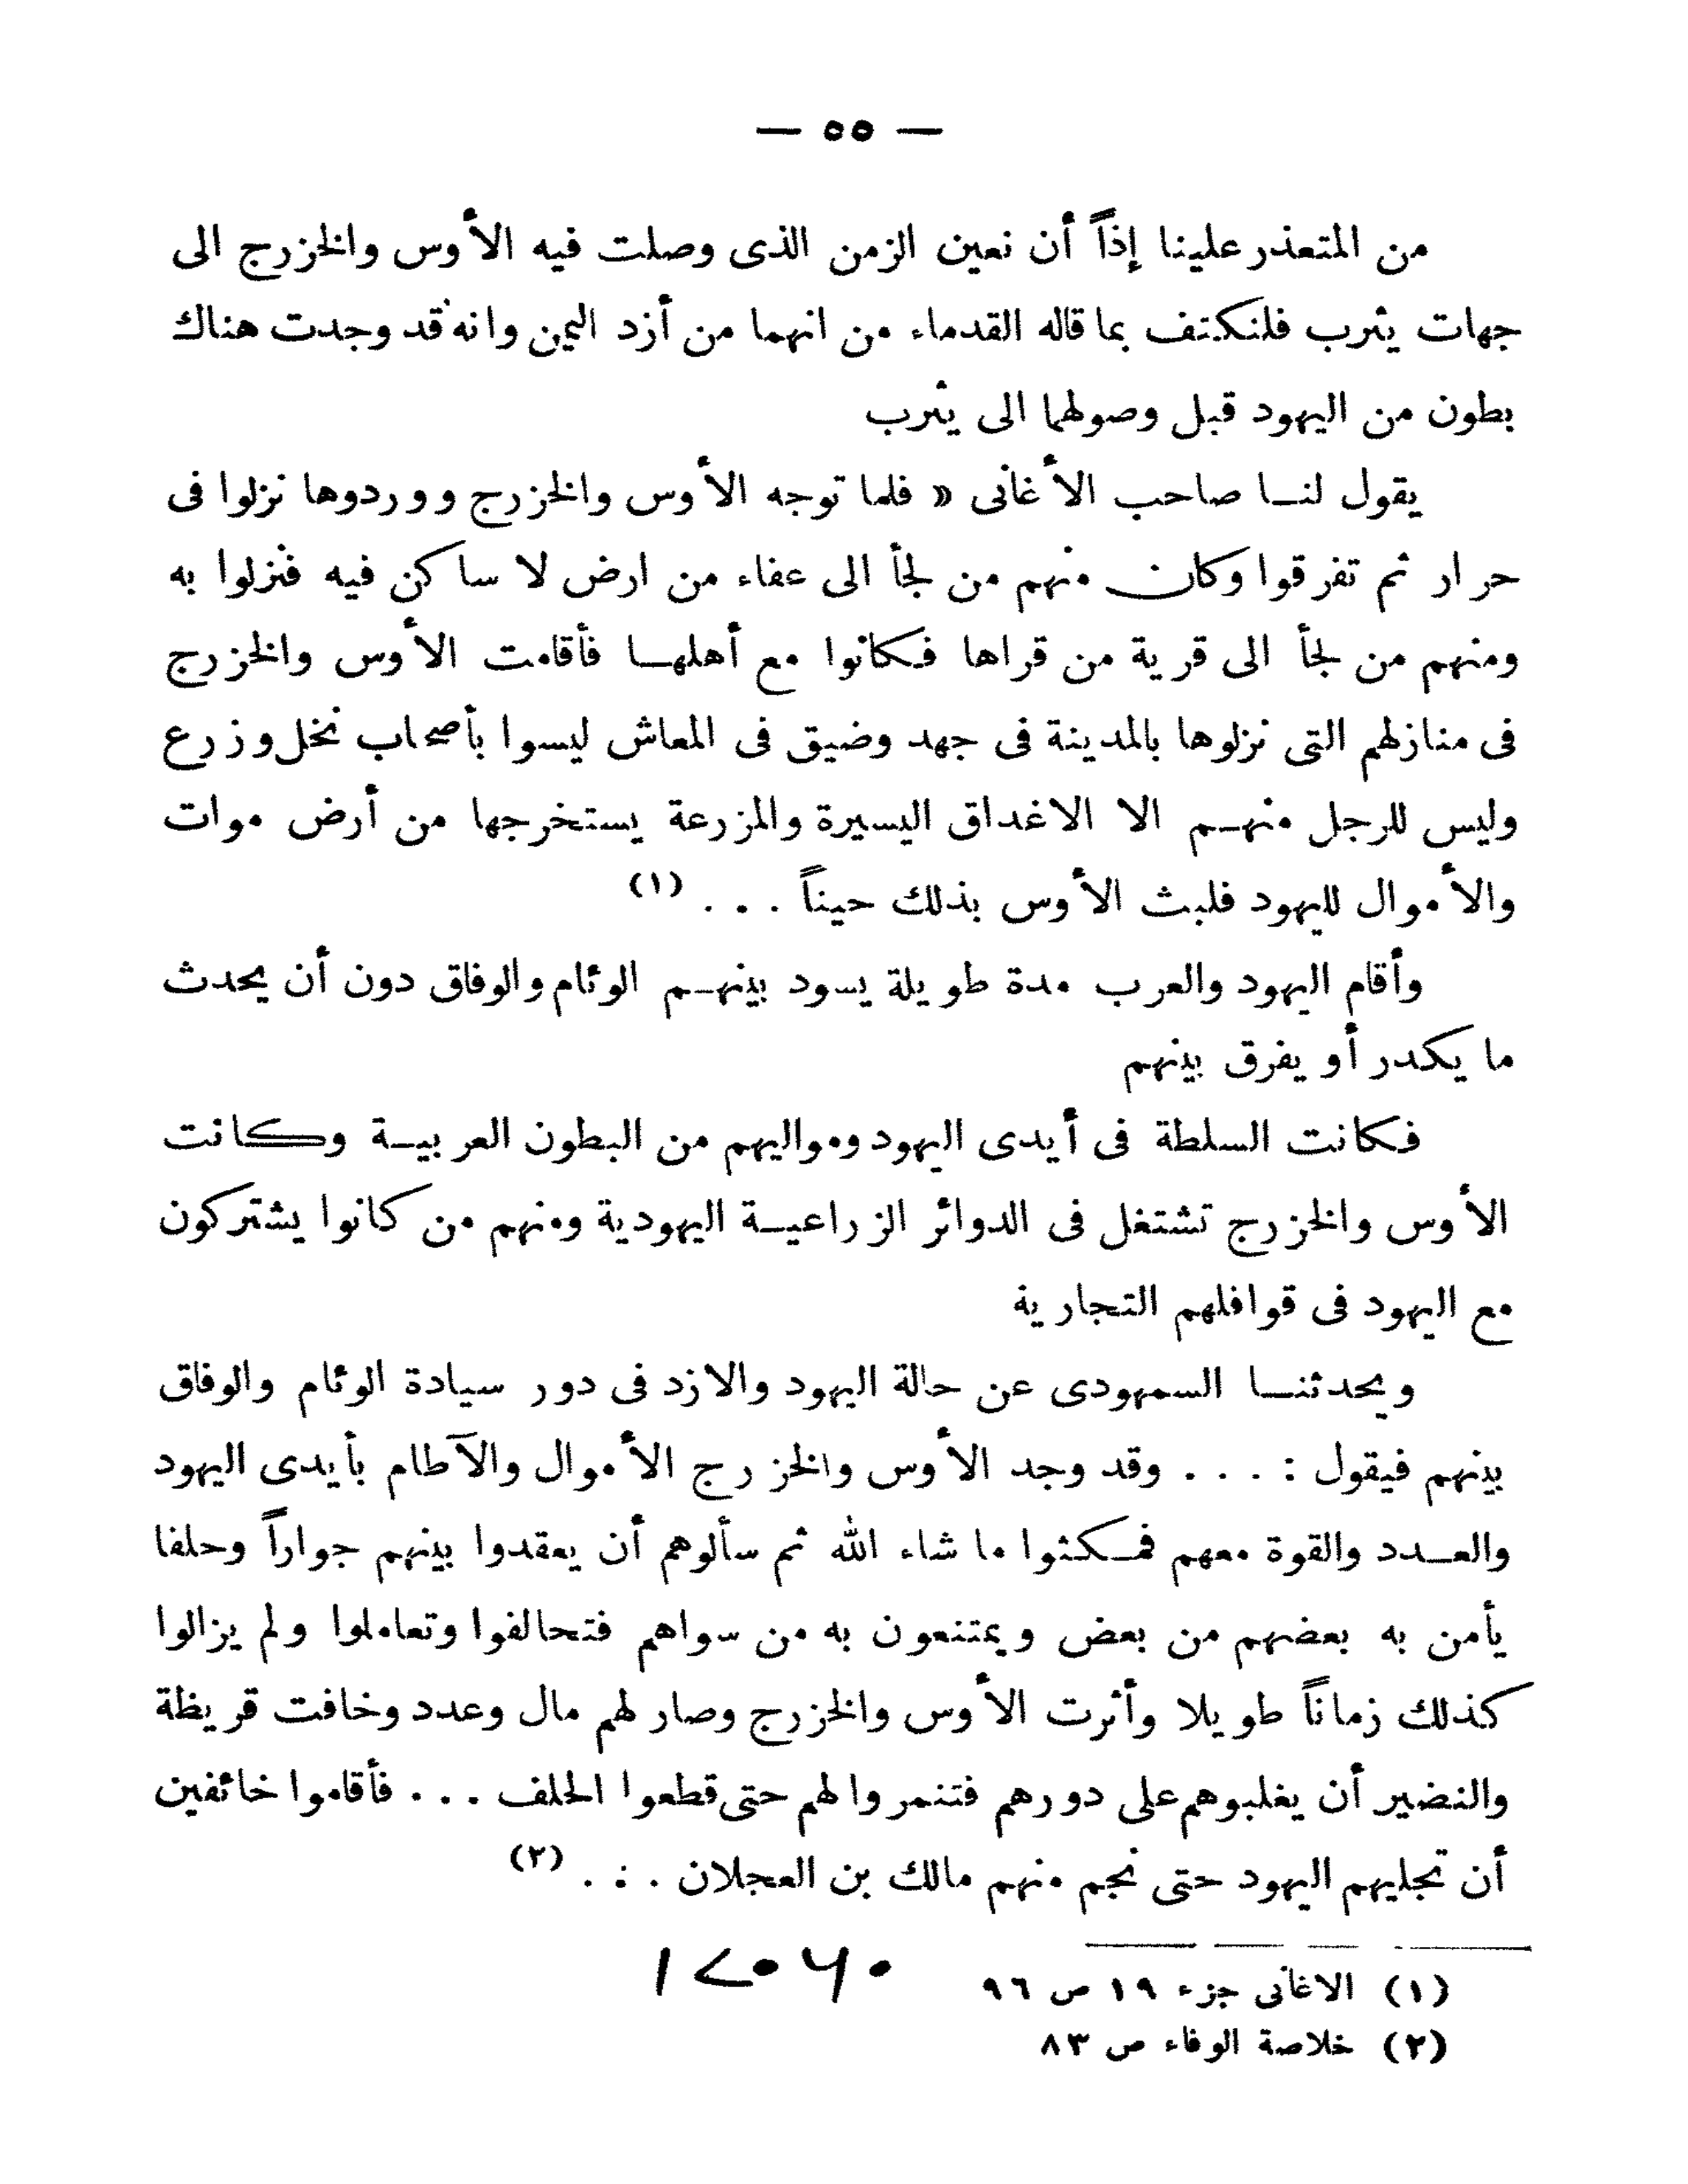 — ٥٥ —
من المتعذر علينا إذاً أن نعين الزمن الذى وصلت فيه الأوس والخزرج الى
جهات يثرب فلنكتف بما قاله القدماء من انهما من أزد اليمن وانه قد وجدت هناك
بطون من اليهود قبل وصولهما الى يثرب
يقول لنا صاحب الأغانى « فلما توجه الأوس والخزرج ووردوها نزلوا فى
حرار ثم تفرقوا وكان منهم من لجأ الى عفاء من ارض لا ساكن فيه فنزلوا به
ومنهم من لجأ الى قرية من قراها فكانوا مع أهلها فأقامت الأوس والخزرج
فى منازلهم التى نزلوها بالمدينة فى جهد وضيق فى المعاش ليسوا بأصحاب نخل وزرع
وليس للرجل منهم الا الاغداق اليسيرة والمزرعة يستخرجها من أرض موات
والأموال لليهود فلبث الأوس بذلك حيناً . . . (١)
وأقام اليهود والعرب مدة طويلة يسود بينهم الوئام والوفاق دون أن يحدث
ما يكدر أو يفرق بينهم
فكانت السلطة فى أيدى اليهود ومواليهم من البطون العربية وكانت
الأوس والخزرج تشتغل فى الدوائر الزراعية اليهودية ومنهم من كانوا يشتركون
مع اليهود فى قوافلهم التجارية
ويحدثنا السمهودى عن حالة اليهود والازد فى دور سيادة الوئام والوفاق
بينهم فيقول : . . . وقد وجد الأوس والخزرج الأموال والآطام بأيدى اليهود
والعدد والقوة معهم فمكثوا ما شاء الله ثم سألوهم أن يعقدوا بينهم جواراً وحلفا
يأمن به بعضهم من بعض ويمتنعون به من سواهم فتحالفوا وتعاملوا ولم يزالوا
كذلك زماناً طويلا وأثرت الأوس والخزرج وصار لهم مال وعدد وخافت قريظة
والنضير أن يغلبوهم على دورهم فتنمروا لهم حتى قطعوا الحلف . . . فأقاموا خائفين
أن تجليهم اليهود حتى نجم منهم مالك بن العجلان . . . (٢)
(١) الاغانى جزء ١٩ ص ٩٦
(٢) خلاصة الوفاء ص ٨٣